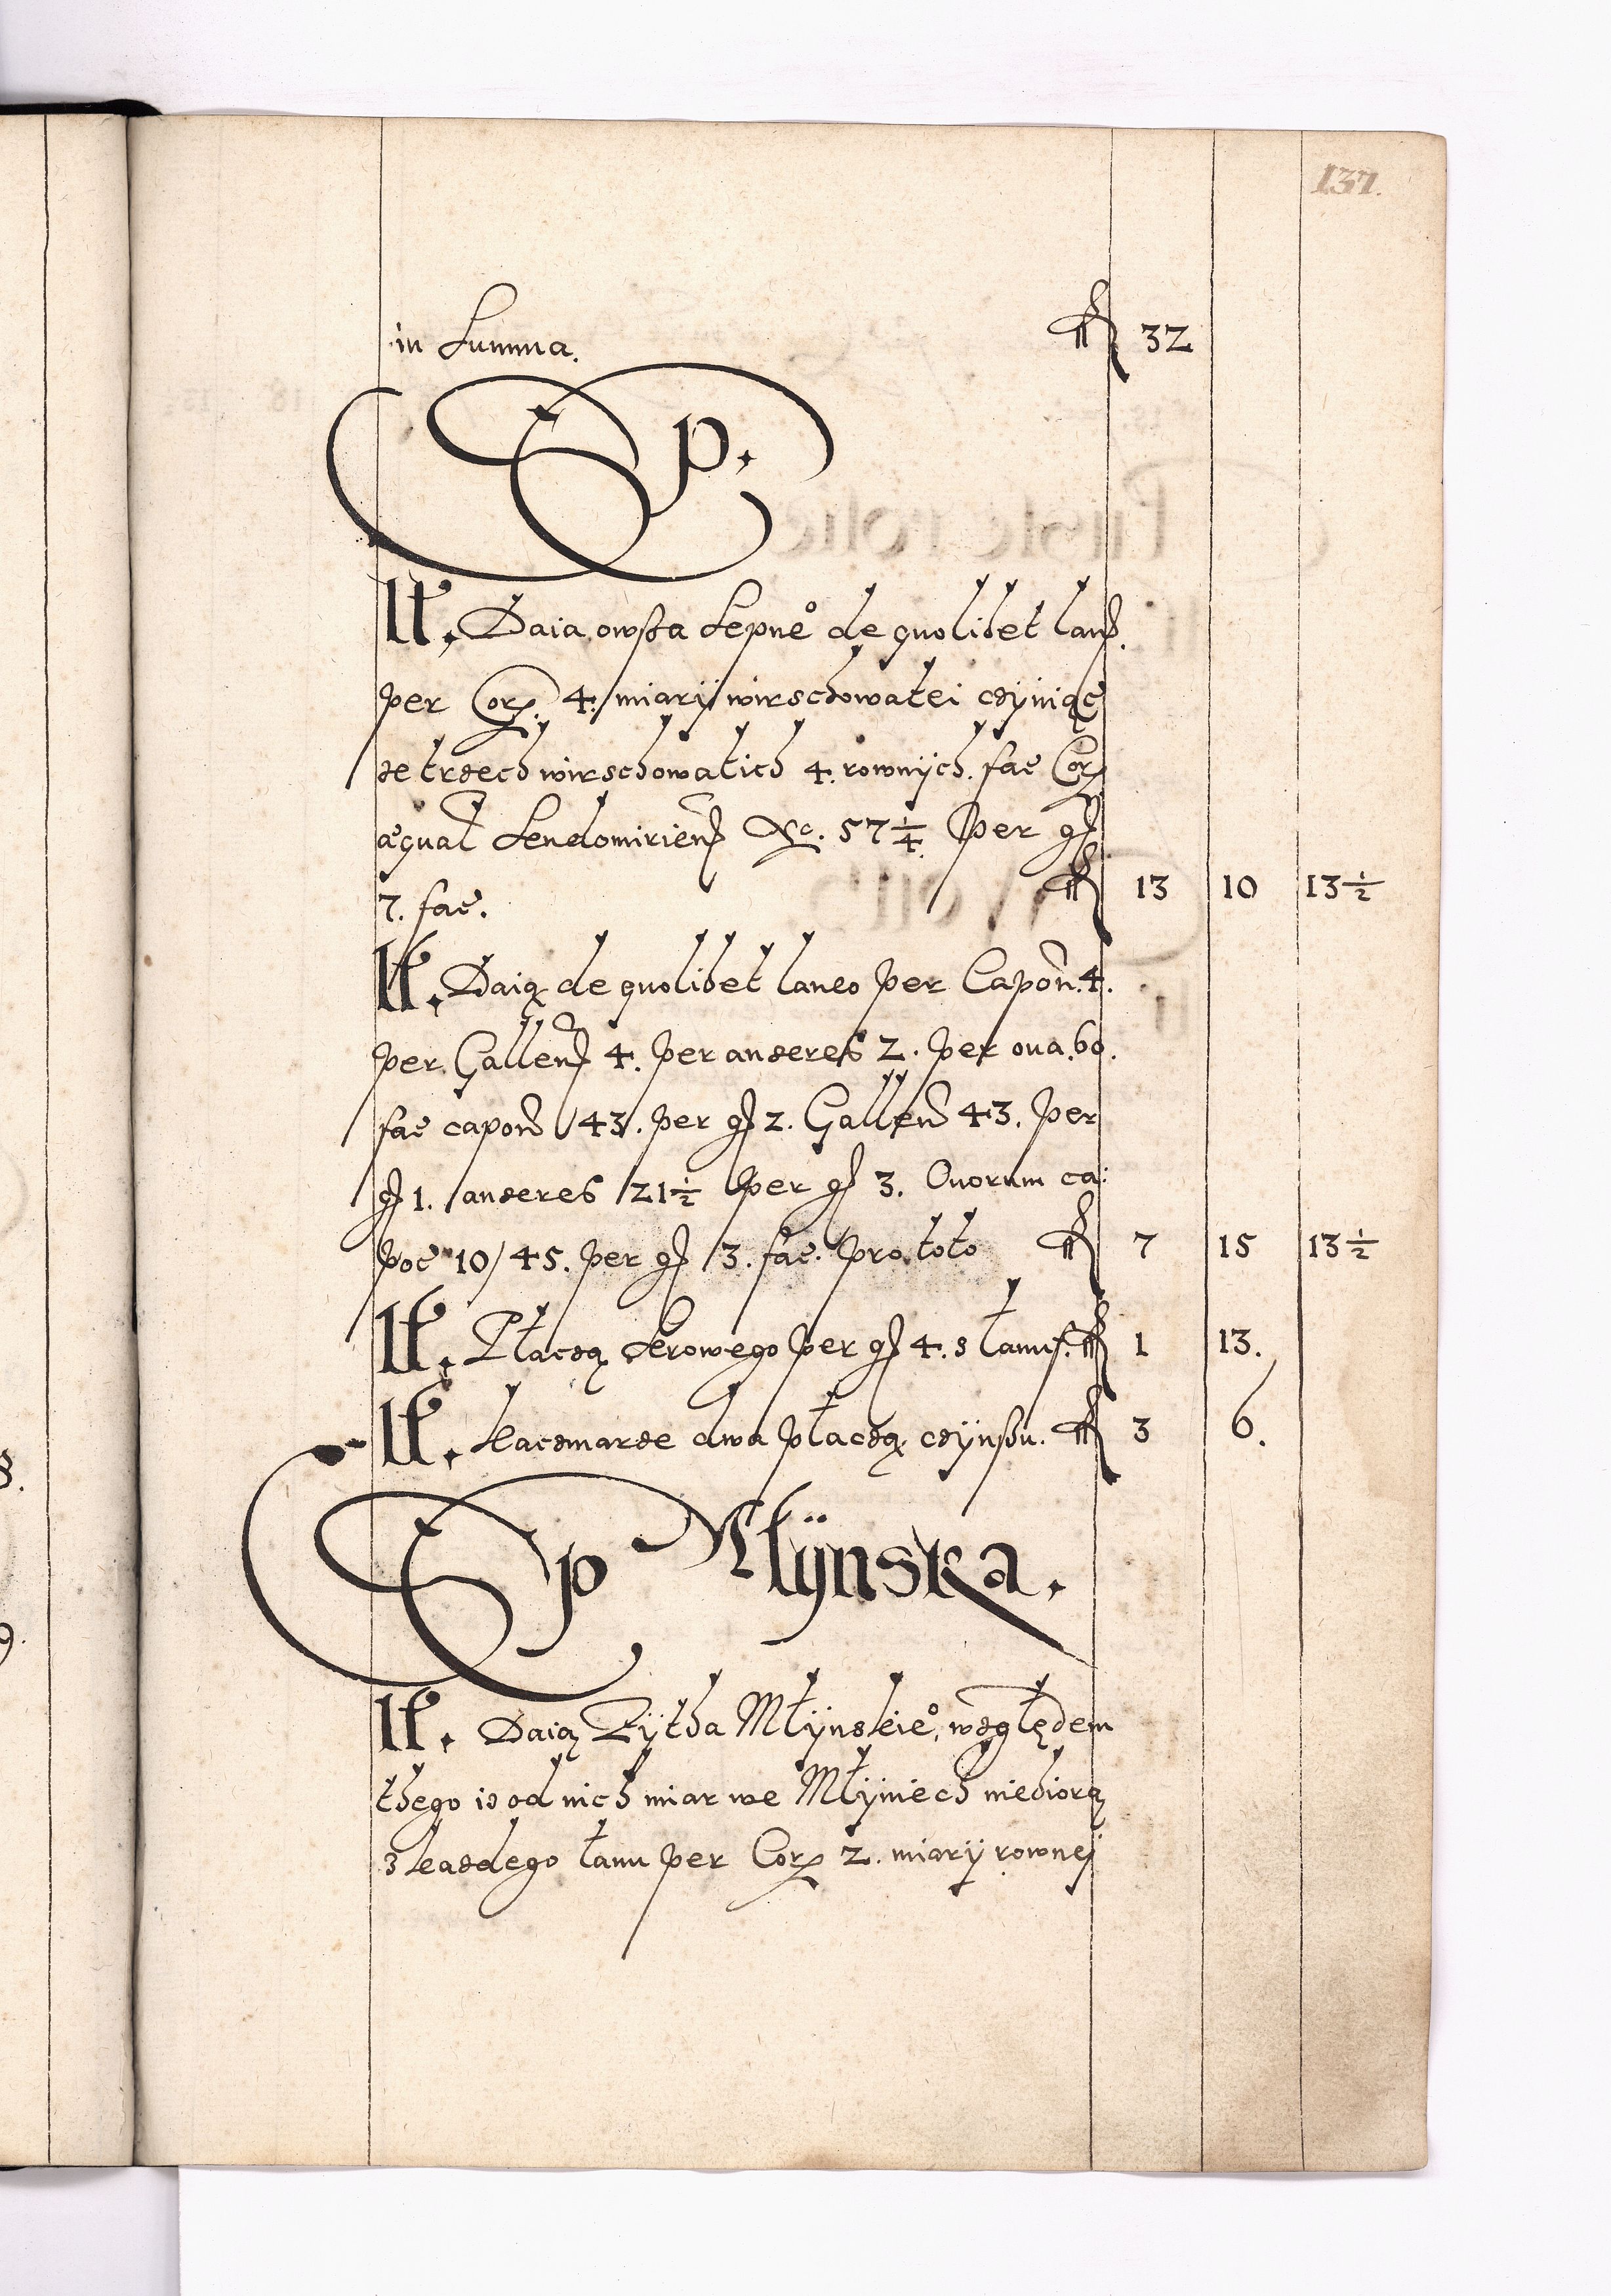 137.
in Summa. ff 32
Sp.
It. Daia owsa Sepne° de quolibet lan.
per Cor. 4. miary wirschowatei czyniąc
ze trzech wirschowatich 4. rownych. fac Cor
æqual Sendomirien &c. 57 1/4 per g
7. fac. ff 13 10 13 1/2
It. Daią de quolibet laneo per Capon. 4.
per Gallen 4. per anseres 2. per oua. 60.
fac capon 43. per g 2. Gallen 43. per
g 1. anseres 21 1/2 per g 3. Ouorum ca:
poe 10/45. per g 3. fac. pro toto ff 7 15 13 1/2
It. Płaczą Serowego per g 4. z łanu. ff 1 13.
It. Kaczmarze dwa płaczą czynszu. ff 3 6.
Sp Mlynska.
It. Daią Zytha Młynskie°, względem
thego iz od nich miar we Młyniech niebiorą
z kazdego łanu per Cor 2. miary rowney